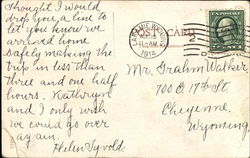 Thought I would
drop you a line to
let you know we
arrived home
safely making the
trip in less than
three and one half
hours. Kathryn
and I only wish
we could go over
again.
Helen
POST CARD
LARAMIE, WYO.
1914
Mr. Grahm Walker
700 E 17th St.
Cheyenne,
Wyoming